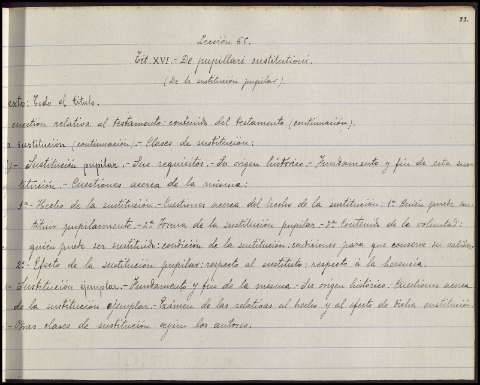 Lección 65.
Tít. XVI.- De pupillari substitutione.
(De la sustitución pupilar)
Texto: Todo el título.
cuestión relativa al testamento: contenido del testamento (continuación).
sustitución (continuación).- Clases de sustitución:
- Sustitución pupilar.- Sus requisitos.- Su origen histórico.- Fundamento y fin de esta sus-
titución.- Cuestiones acerca de la misma:
1ª- Hecho de la sustitución.- Cuestiones acerca del hecho de la sustitución: 1ª Quién puede sus-
tituir pupilarmente.- 2ª Forma de la sustitución pupilar.- 3ª Contenido de la voluntad:
quién puede ser sustituido: condición de la sustitución: condiciones para que conserve su validez.
2ª- Efecto de la sustitución pupilar: respecto al sustituto: respecto á la herencia.
- Sustitución ejemplar.- Fundamento y fin de la misma.- Su origen histórico. Cuestiones acerca
de la sustitución ejemplar.- Exámen de las relativas al hecho y al efecto de dicha sustitución
- Otras clases de sustitución según los autores.